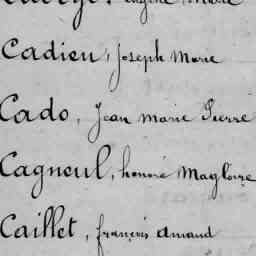 Cadieu, Joseph Marie
Cado, Jean marie Pierre
Cagneul, honoré Magloire
Caillet, françois amand